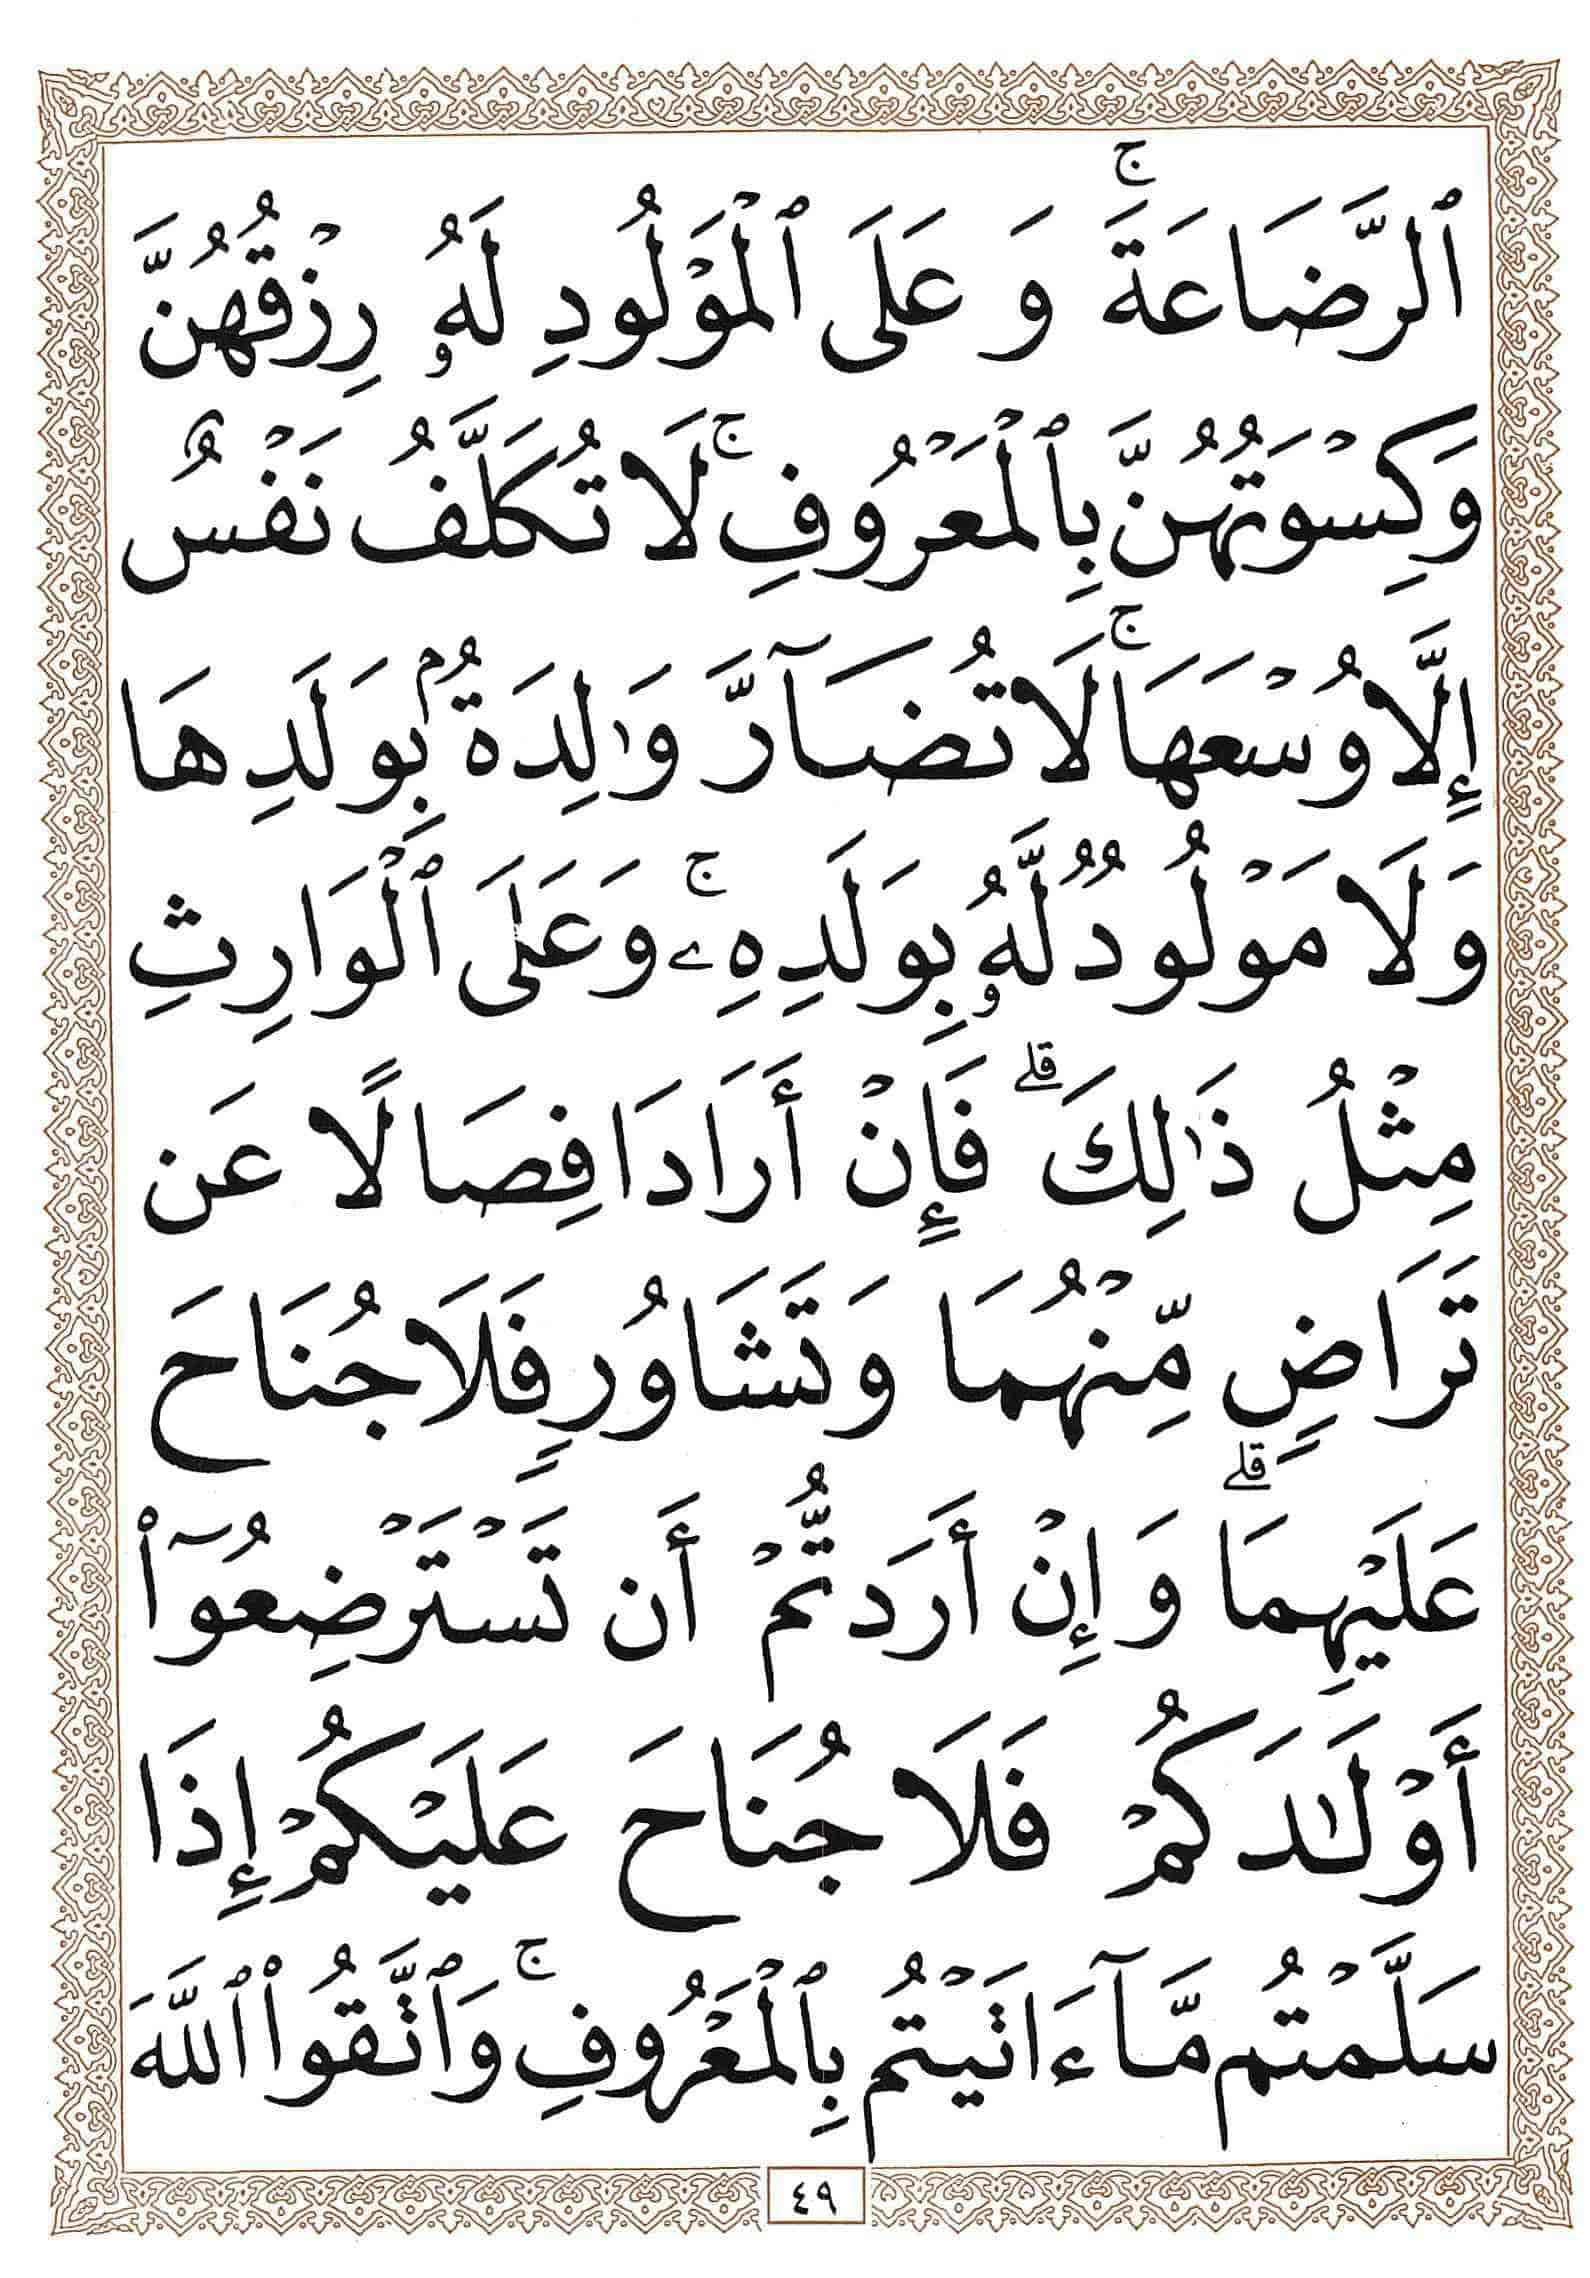 ٱلرَّضَاعَةَ ۚ وَعَلَى ٱلْمَوْلُودِ لَهُۥ رِزْقُهُنَّ
وَكِسْوَتُهُنَّ بِٱلْمَعْرُوفِ ۚ لَا تُكَلَّفُ نَفْسٌ
إِلَّا وُسْعَهَا ۚ لَا تُضَآرَّ وَٰلِدَةٌۢ بِوَلَدِهَا
وَلَا مَوْلُودٌ لَّهُۥ بِوَلَدِهِۦ ۚ وَعَلَى ٱلْوَارِثِ
مِثْلُ ذَٰلِكَ ۗ فَإِنْ أَرَادَا فِصَالًا عَن
تَرَاضٍ مِّنْهُمَا وَتَشَاوُرٍ فَلَا جُنَاحَ
عَلَيْهِمَا ۗ وَإِنْ أَرَدتُّمْ أَن تَسْتَرْضِعُوٓا۟
أَوْلَٰدَكُمْ فَلَا جُنَاحَ عَلَيْكُمْ إِذَا
سَلَّمْتُم مَّآ ءَاتَيْتُم بِٱلْمَعْرُوفِ ۚ وَٱتَّقُوا۟ ٱللَّهَ
٤٩